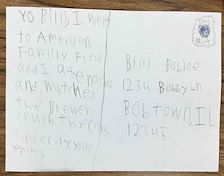 Yo Billi I went
to American
Family Field
and I ate nachos
and watched
the Brewers
crush the cubs
sincerily your
Billi Bobloe
1234 Bobby Ln
Bobtown, IL
12345